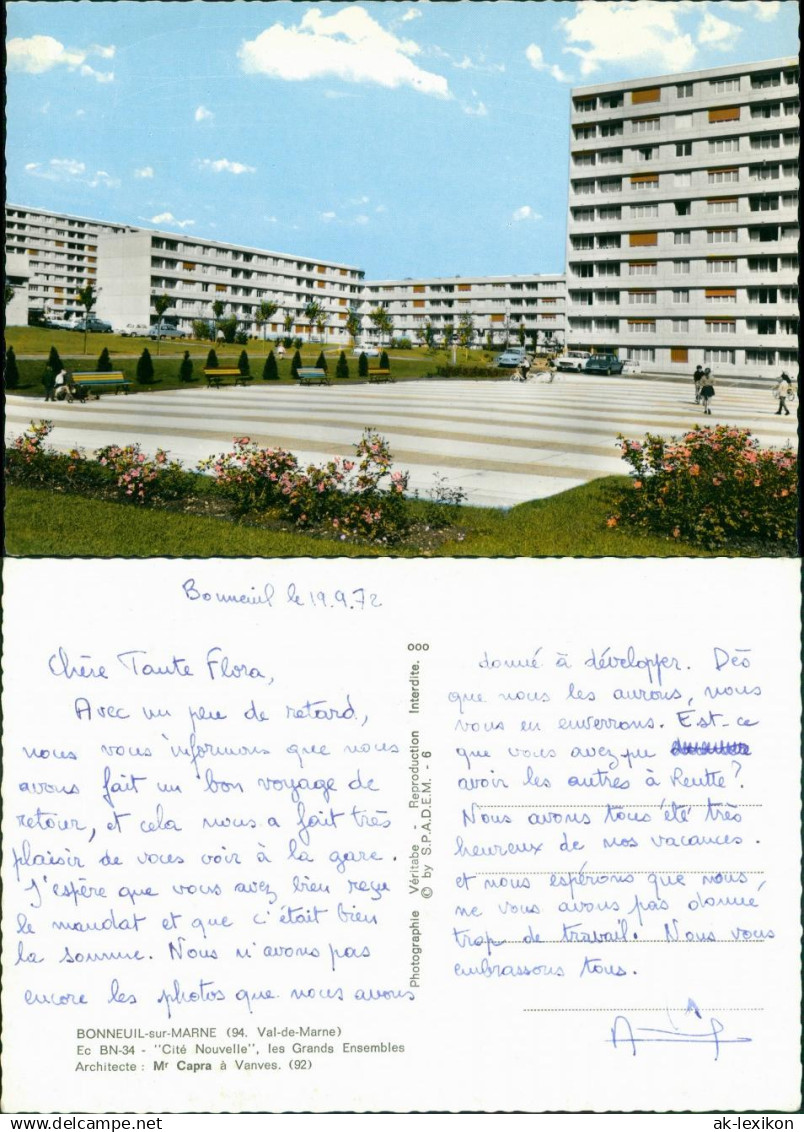 Bonneuil le 19.9.72
Chère Tante Flora,
Avec un peu de retard,
nous vous informons que nous
avons fait un bon voyage de
retour, et cela nous a fait très
plaisir de vous voir à la gare.
J'espère que vous avez bien reçu
le mandat et que c'était bien
la somme. Nous n'avons pas
encore les photos que nous avons
BONNEUIL-sur-MARNE (94. Val-de-Marne)
Ec BN-34 - "Cité Nouvelle", les Grands Ensembles
Architecte : Mr Capra à Vanves. (92)
Photographie Véritabe - Reproduction Interdite.
© by S.P.A.D.E.M. - 6
donné à développer. Dès
que nous les aurons, nous
vous en enverrons. Est-ce
que vous avez pu
avoir les autres à Reutte?
Nous avons tous été très
heureux de nos vacances.
et nous espérons que nous,
ne vous avons pas donné
trop de travail. Nous vous
embrassons tous.
ak-lexikon.de
www.ak-ansichtskarten.de